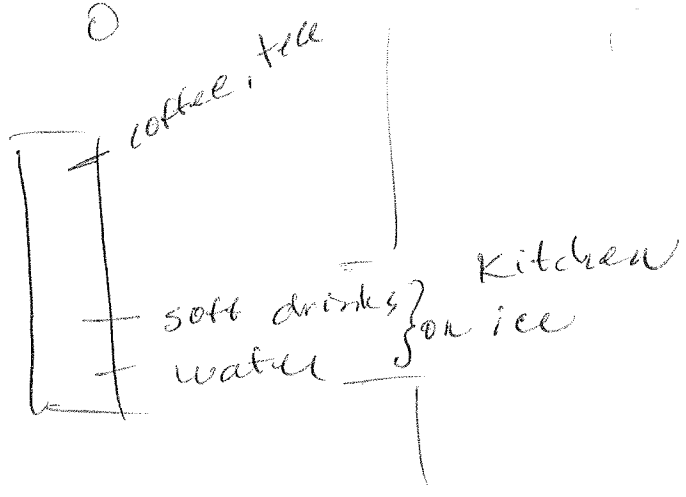 coffee, tea
Kitchen
soft drinks } on ice
water